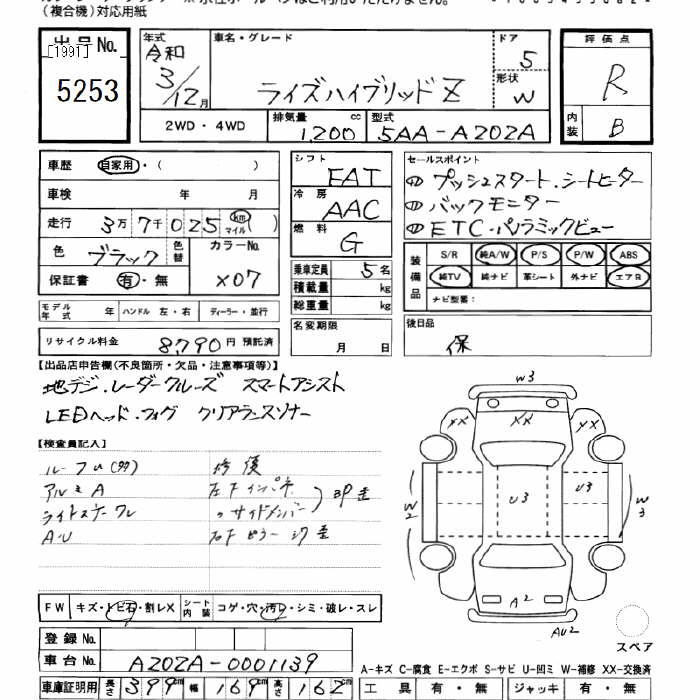 （複合機）対応用紙
出品No.
[1991]
5253
年式 車名・グレード ドア 評価点
令和 3/12月 ライズハイブリッドZ 5 R
形状 W
2WD・4WD 排気量 1,200 cc 型式 5AA-A202A 内装 B
車歴 自家用・( )
車検 年 月
走行 3万7千025 km マイル ( )
色 ブラック 色替 カラーNo. X07
保証書 有・無
モデル年式 年 ハンドル 左・右 ディーラー・並行
リサイクル料金 8,790円 預託済
シフト FAT
冷房 AAC
燃料 G
乗車定員 5名
積載量 kg
総重量 kg
名変期限 月 日
セールスポイント
① プッシュスタート.シートヒーター
① バックモニター
① ETC・パノラミックビュー
装備品 S/R 純A/W P/S P/W ABS
純TV 純ナビ 革シート 外ナビ エアB
ナビ型番：
後日品
保
【出品店申告欄(不良箇所・欠品・注意事項等)】
地デジ.レーダークルーズ スマートアシスト
LEDヘッド.フォグ クリアランスソナー
【検査員記入】
修復
アルミA 左F インパネ
〃サイドメンバー
A・U
FW キズ・トビ石・割レX シート内装 コゲ・穴・汚レ・シミ・破レ・スレ
登録No.
車台No. A202A-0001139
車庫証明用 長さ 399cm 幅 169cm 高さ 162cm
W3
XX XX XX
U3 U3
W2 W3
A2
AU2
スペア
A-キズ C-腐食 E-エクボ S-サビ U-凹ミ W-補修 XX-交換済
工具 有・無 ジャッキ 有・無